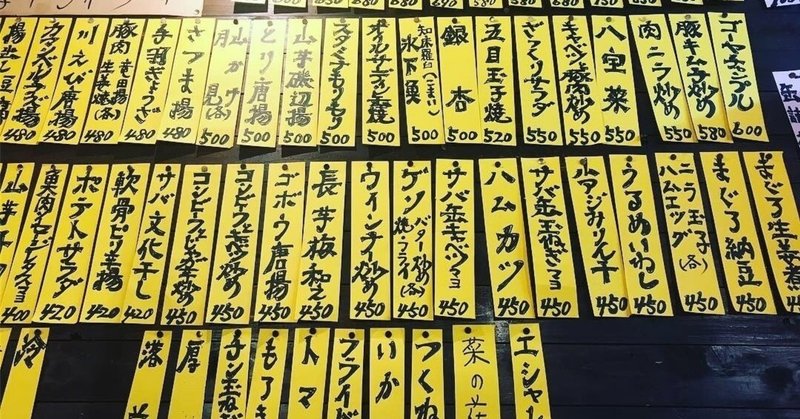 ゴーヤチャンプル
600
豚キムチ炒め
580
肉ニラ炒め
550
八宝菜
550
キャベツと豚肉炒め
550
ざっくりサラダ
550
五目玉子焼
520
銀杏
500
知床羅臼(こまい)
氷下魚
500
オイルサーディン焼
500
スタミナもりもり
500
山芋磯辺揚
500
とり唐揚
500
山かけ
月見(各)
500
さつま揚
480
手羽ぎょうざ
480
豚肉竜田揚
生姜焼(各)
480
川えび唐揚
480
カマンベールチーズ揚
480
揚出し豆腐
480
まぐろ生姜煮
450
まぐろ納豆
450
ニラ玉子
ハムエッグ(各)
450
うるめいわし
450
小アジみりん干
450
サバ缶玉ねぎマヨ
450
ハムカツ
450
サバ缶キャベツマヨ
450
ゲソバター炒め
焼・フライ(各)
450
ウインナー炒め
450
長芋梅和え
450
ゴボウ唐揚
450
コンビーフとキャベツ炒め
450
コンビーフとじゃが芋炒め
450
サバ文化干し
450
軟骨ピリ辛揚
420
ポテトサラダ
420
魚肉ソーセージマヨ
420
山芋
400
エシャレ
菜の花
つくね
いか
フライド
トマ
もろき
チン玉ねぎ
厚
冷